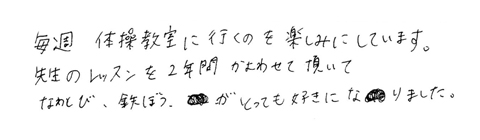 毎週 体操教室に行くのを楽しみにしています。
先生のレッスンを2年間かよわせて頂いて
なわとび、鉄ぼう、がとっても好きになりました。